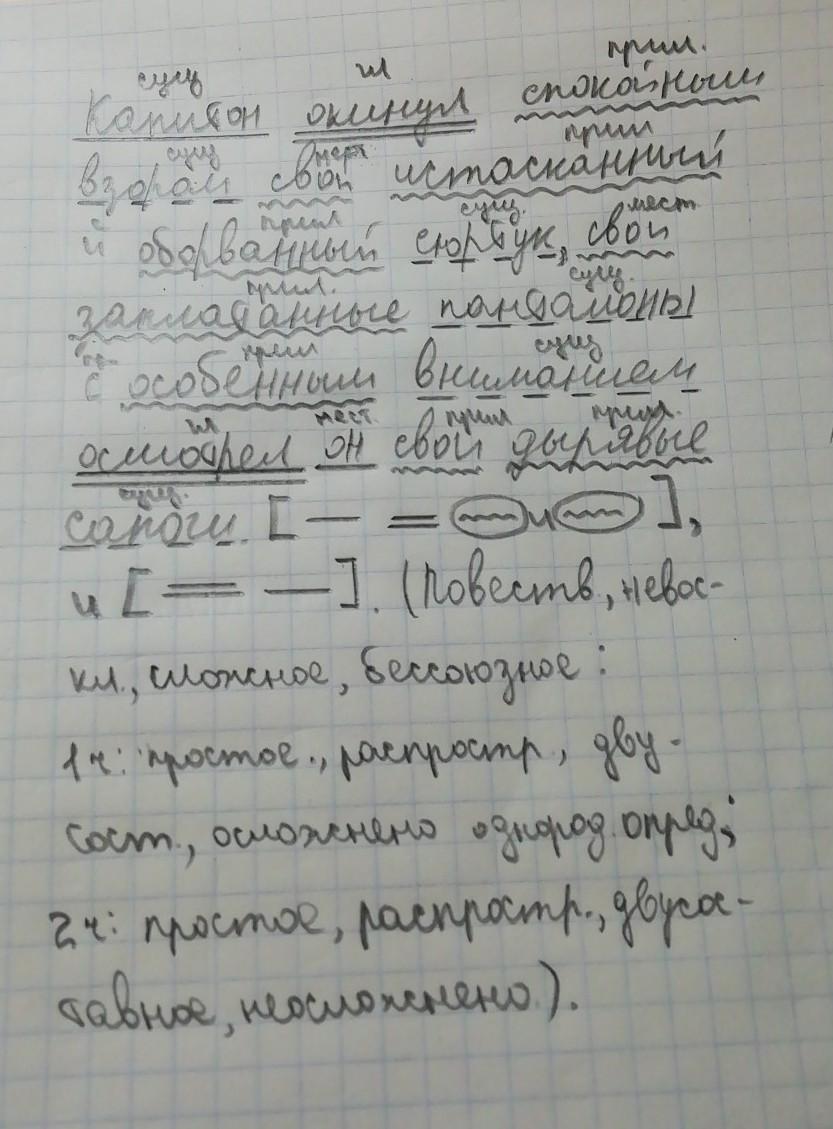 сущ гл прил.
Капитон окинул спокойным
сущ мест прил
взором свой истасканный
с прил сущ. мест.
и оборванный сюртук, свои
прил. сущ.
заплатанные панталоны
пр. прил сущ
с особенным вниманием
гл мест. прил прил.
осмотрел он свои дырявые
сущ.
сапоги. [— = и ],
и [= —]. (Повеств., невос-
кл., сложное, бессоюзное:
1ч: простое., распростр., дву-
сост., осложнено однород. опред.;
2ч: простое, распростр., двусос-
тавное, неосложнено).